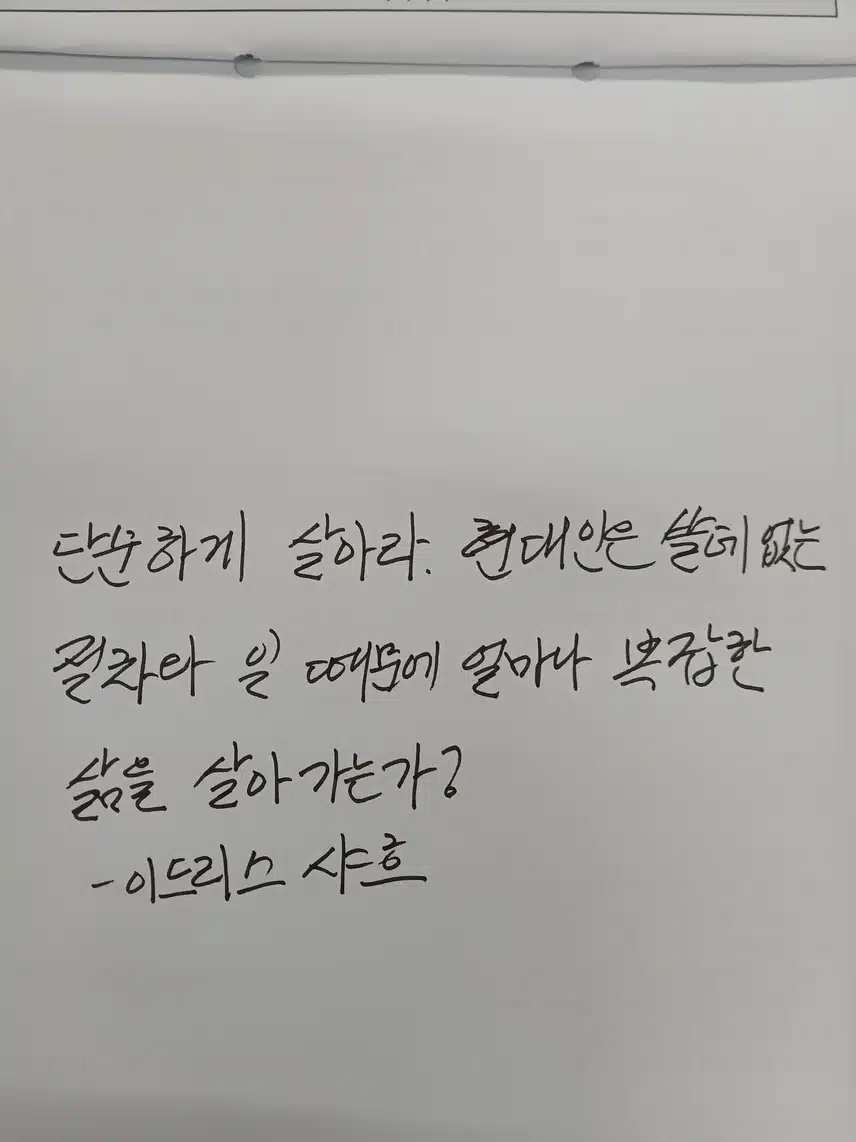 단순하게 살아라. 현대인은 쓸데없는
절차와 일 때문에 얼마나 복잡한
삶을 살아가는가?
-이드리스 샤흐